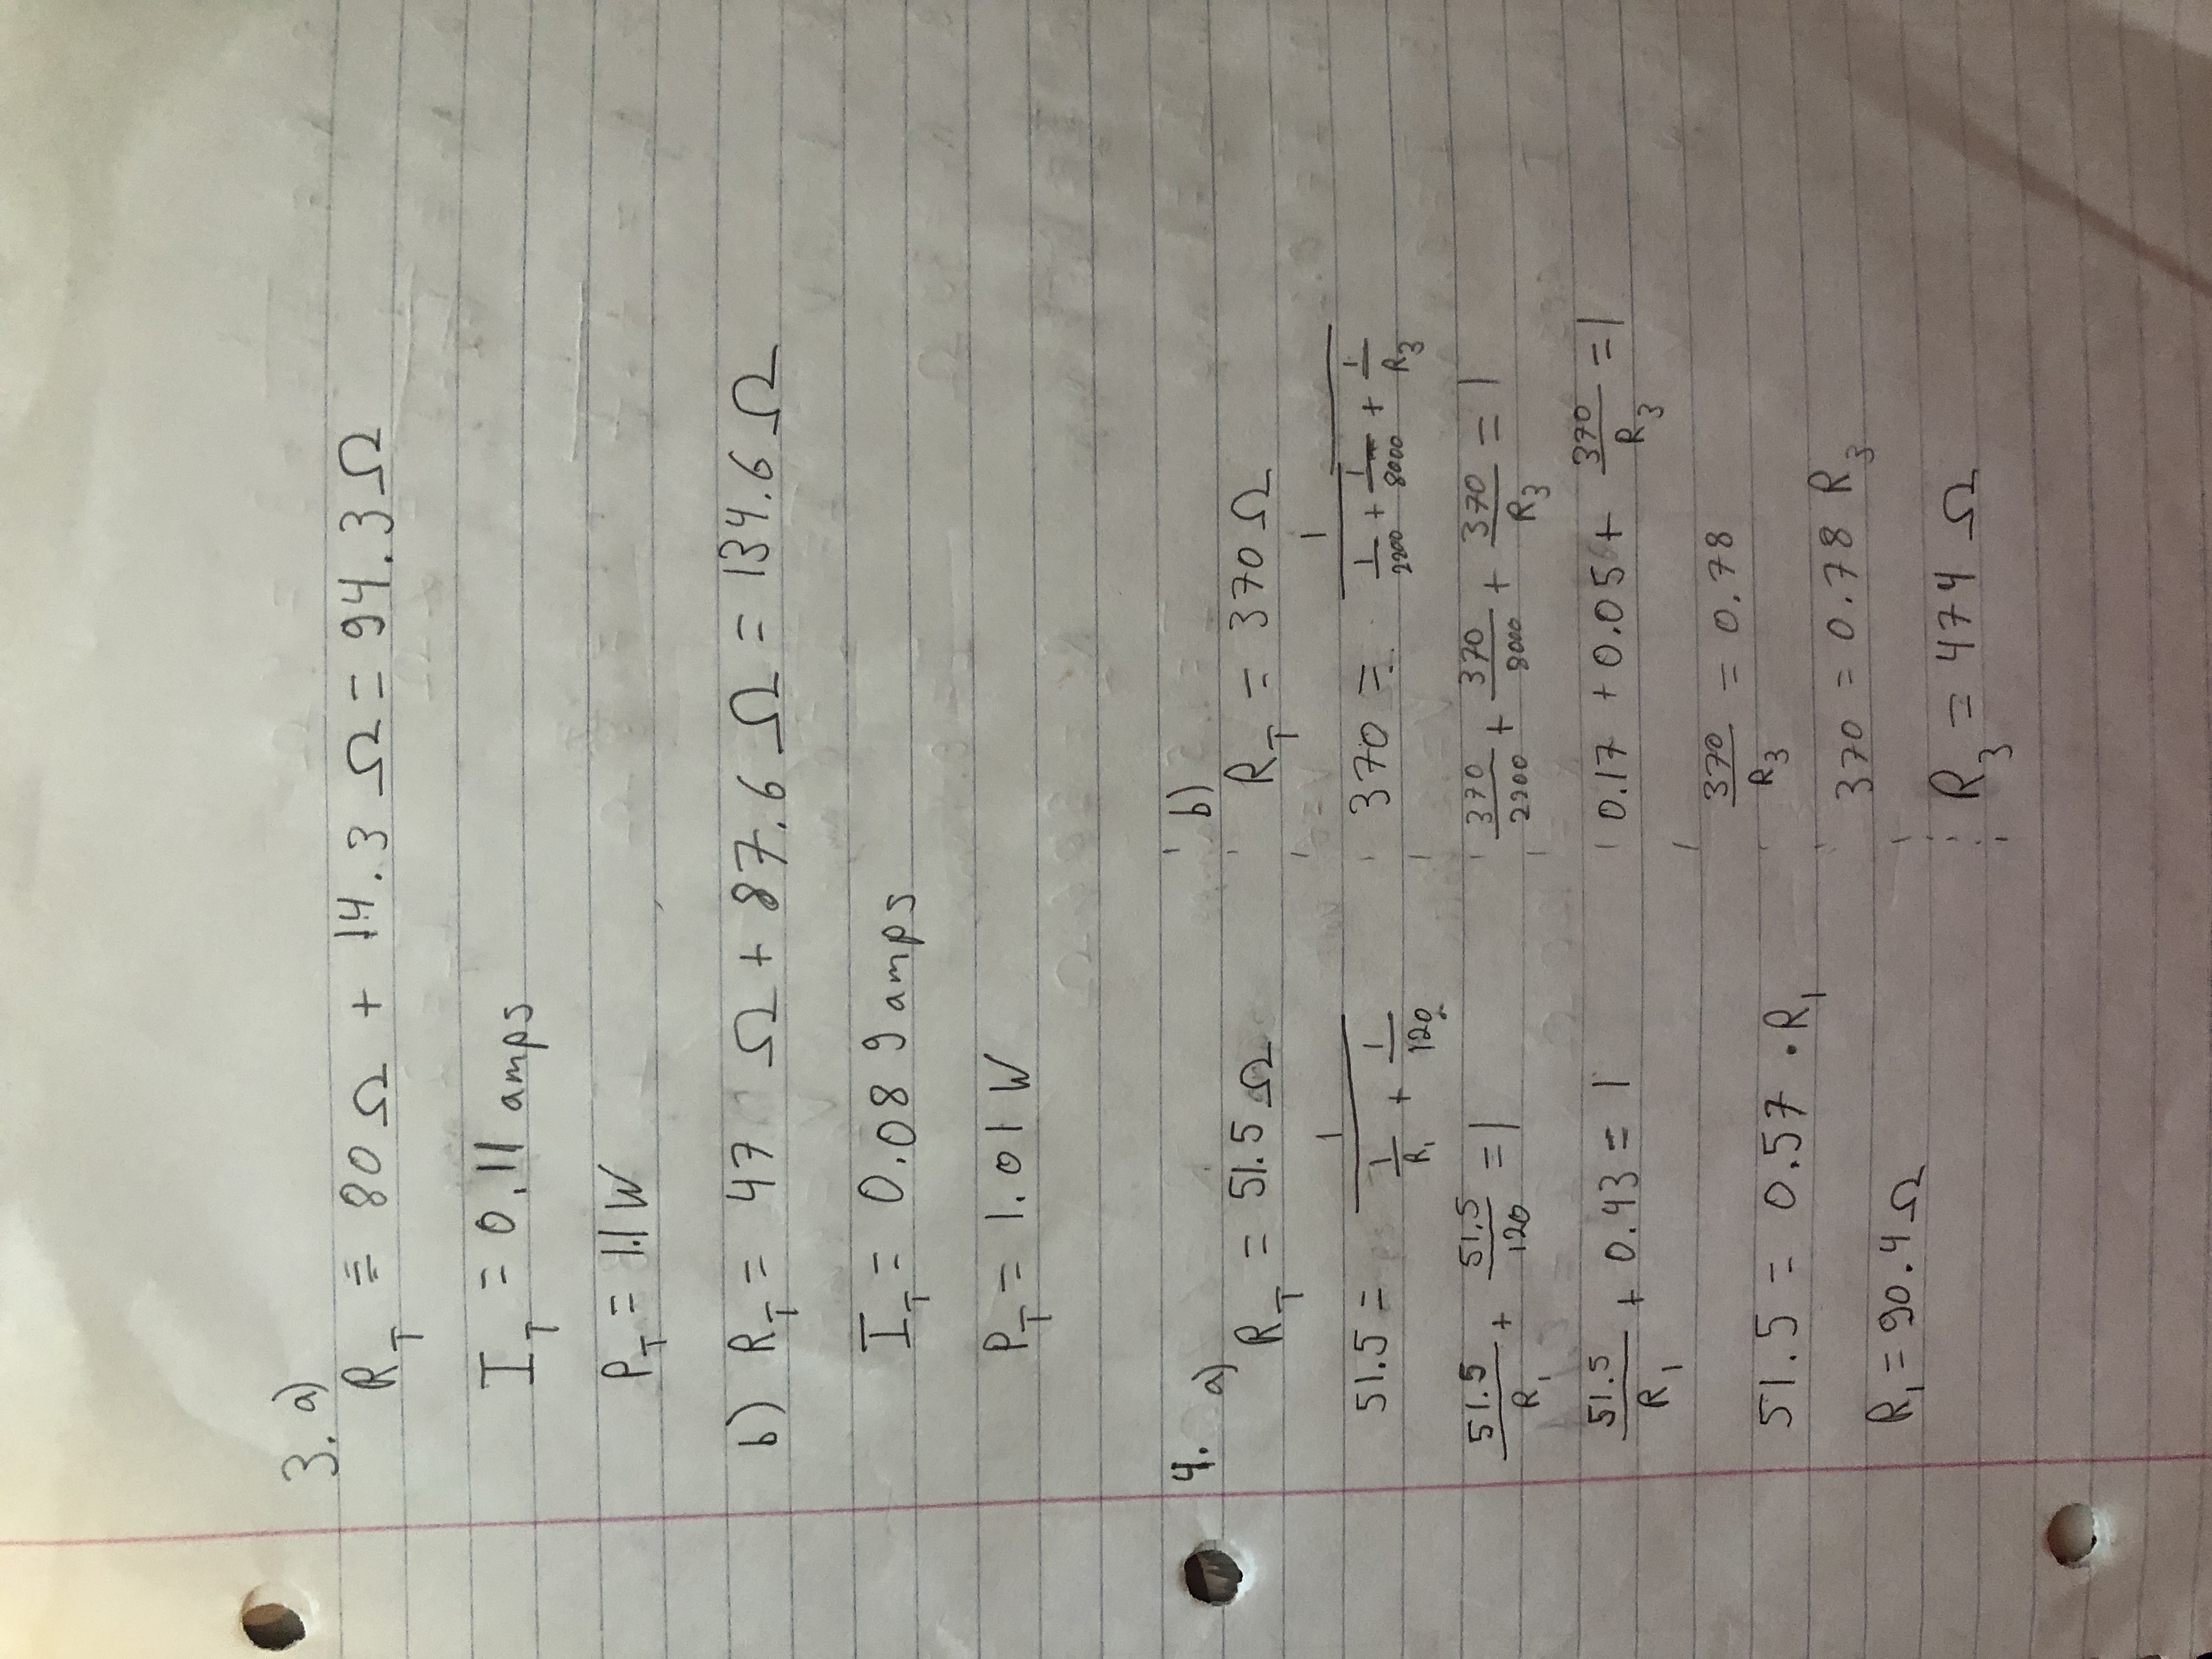 3. a)
R_T = 80 Ω + 14.3 Ω = 94.3 Ω
I_T = 0.11 amps
P_T = 1.1 W
b) R_T = 47 Ω + 87.6 Ω = 134.6 Ω
I_T = 0.089 amps
P_T = 1.01 W
4. a)
R_T = 51.5 Ω
51.5 = 1 / (1/R_1 + 1/120)
51.5/R_1 + 51.5/120 = 1
51.5/R_1 + 0.43 = 1
51.5 = 0.57 · R_1
R_1 = 90.4 Ω
b)
R_T = 370 Ω
370 = 1 / (1/2200 + 1/8000 + 1/R_3)
370/2200 + 370/8000 + 370/R_3 = 1
0.17 + 0.05 + 370/R_3 = 1
370/R_3 = 0.78
370 = 0.78 R_3
R_3 = 474 Ω